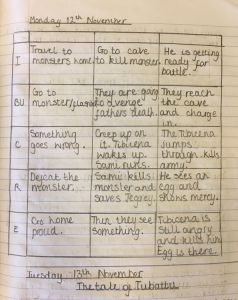 Monday 12th November
I
Travel to
monsters home
Go to cave
to kill monster.
He is getting
ready for
battle.
BU
Go to
monster/
They are going
to avenge
fathers death.
They reach
the cave
and charge
in.
C
Something
goes wrong.
Creep up on
it. Tibicena
wakes up.
Sami runs.
The Tibicena
jumps
through. kills
army.
R
Defeat the
monster.
Sami kills
monster and
saves
He sees an
egg and
shows mercy.
E
Go home
proud.
Then they see
something.
Tibicena is
still angry
and kills him
Egg is there.
Tuesday 13th November
The tale of